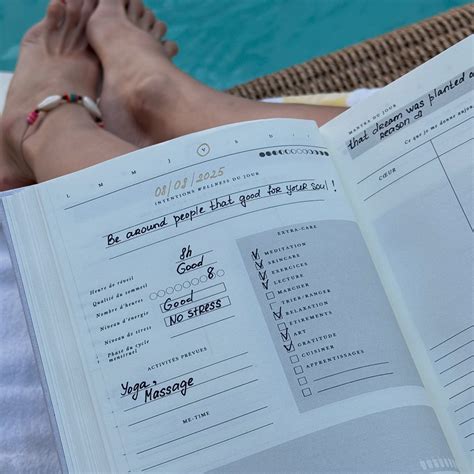 L M M J V S D
08/08/2025
INTENTIONS WELLNESS DU JOUR
Be around people that good for your soul!
Heure de réveil 8h
Qualité du sommeil Good
Nombre d'heures 8
Niveau d'énergie Good
Niveau de stress No stress
Phase du cycle
menstruel
ACTIVITÉS PRÉVUES
Yoga,
Massage
ME-TIME
EXTRA-CARE
MEDITATION
SKINCARE
EXERCICES
LECTURE
MARCHER
TRIER-RANGER
RELAXATION
ETIREMENTS
ART
GRATITUDE
CUISINER
APPRENTISSAGES
MANTRA DU JOUR
that dream was planted
Reason
Ce que je me donne
CŒUR